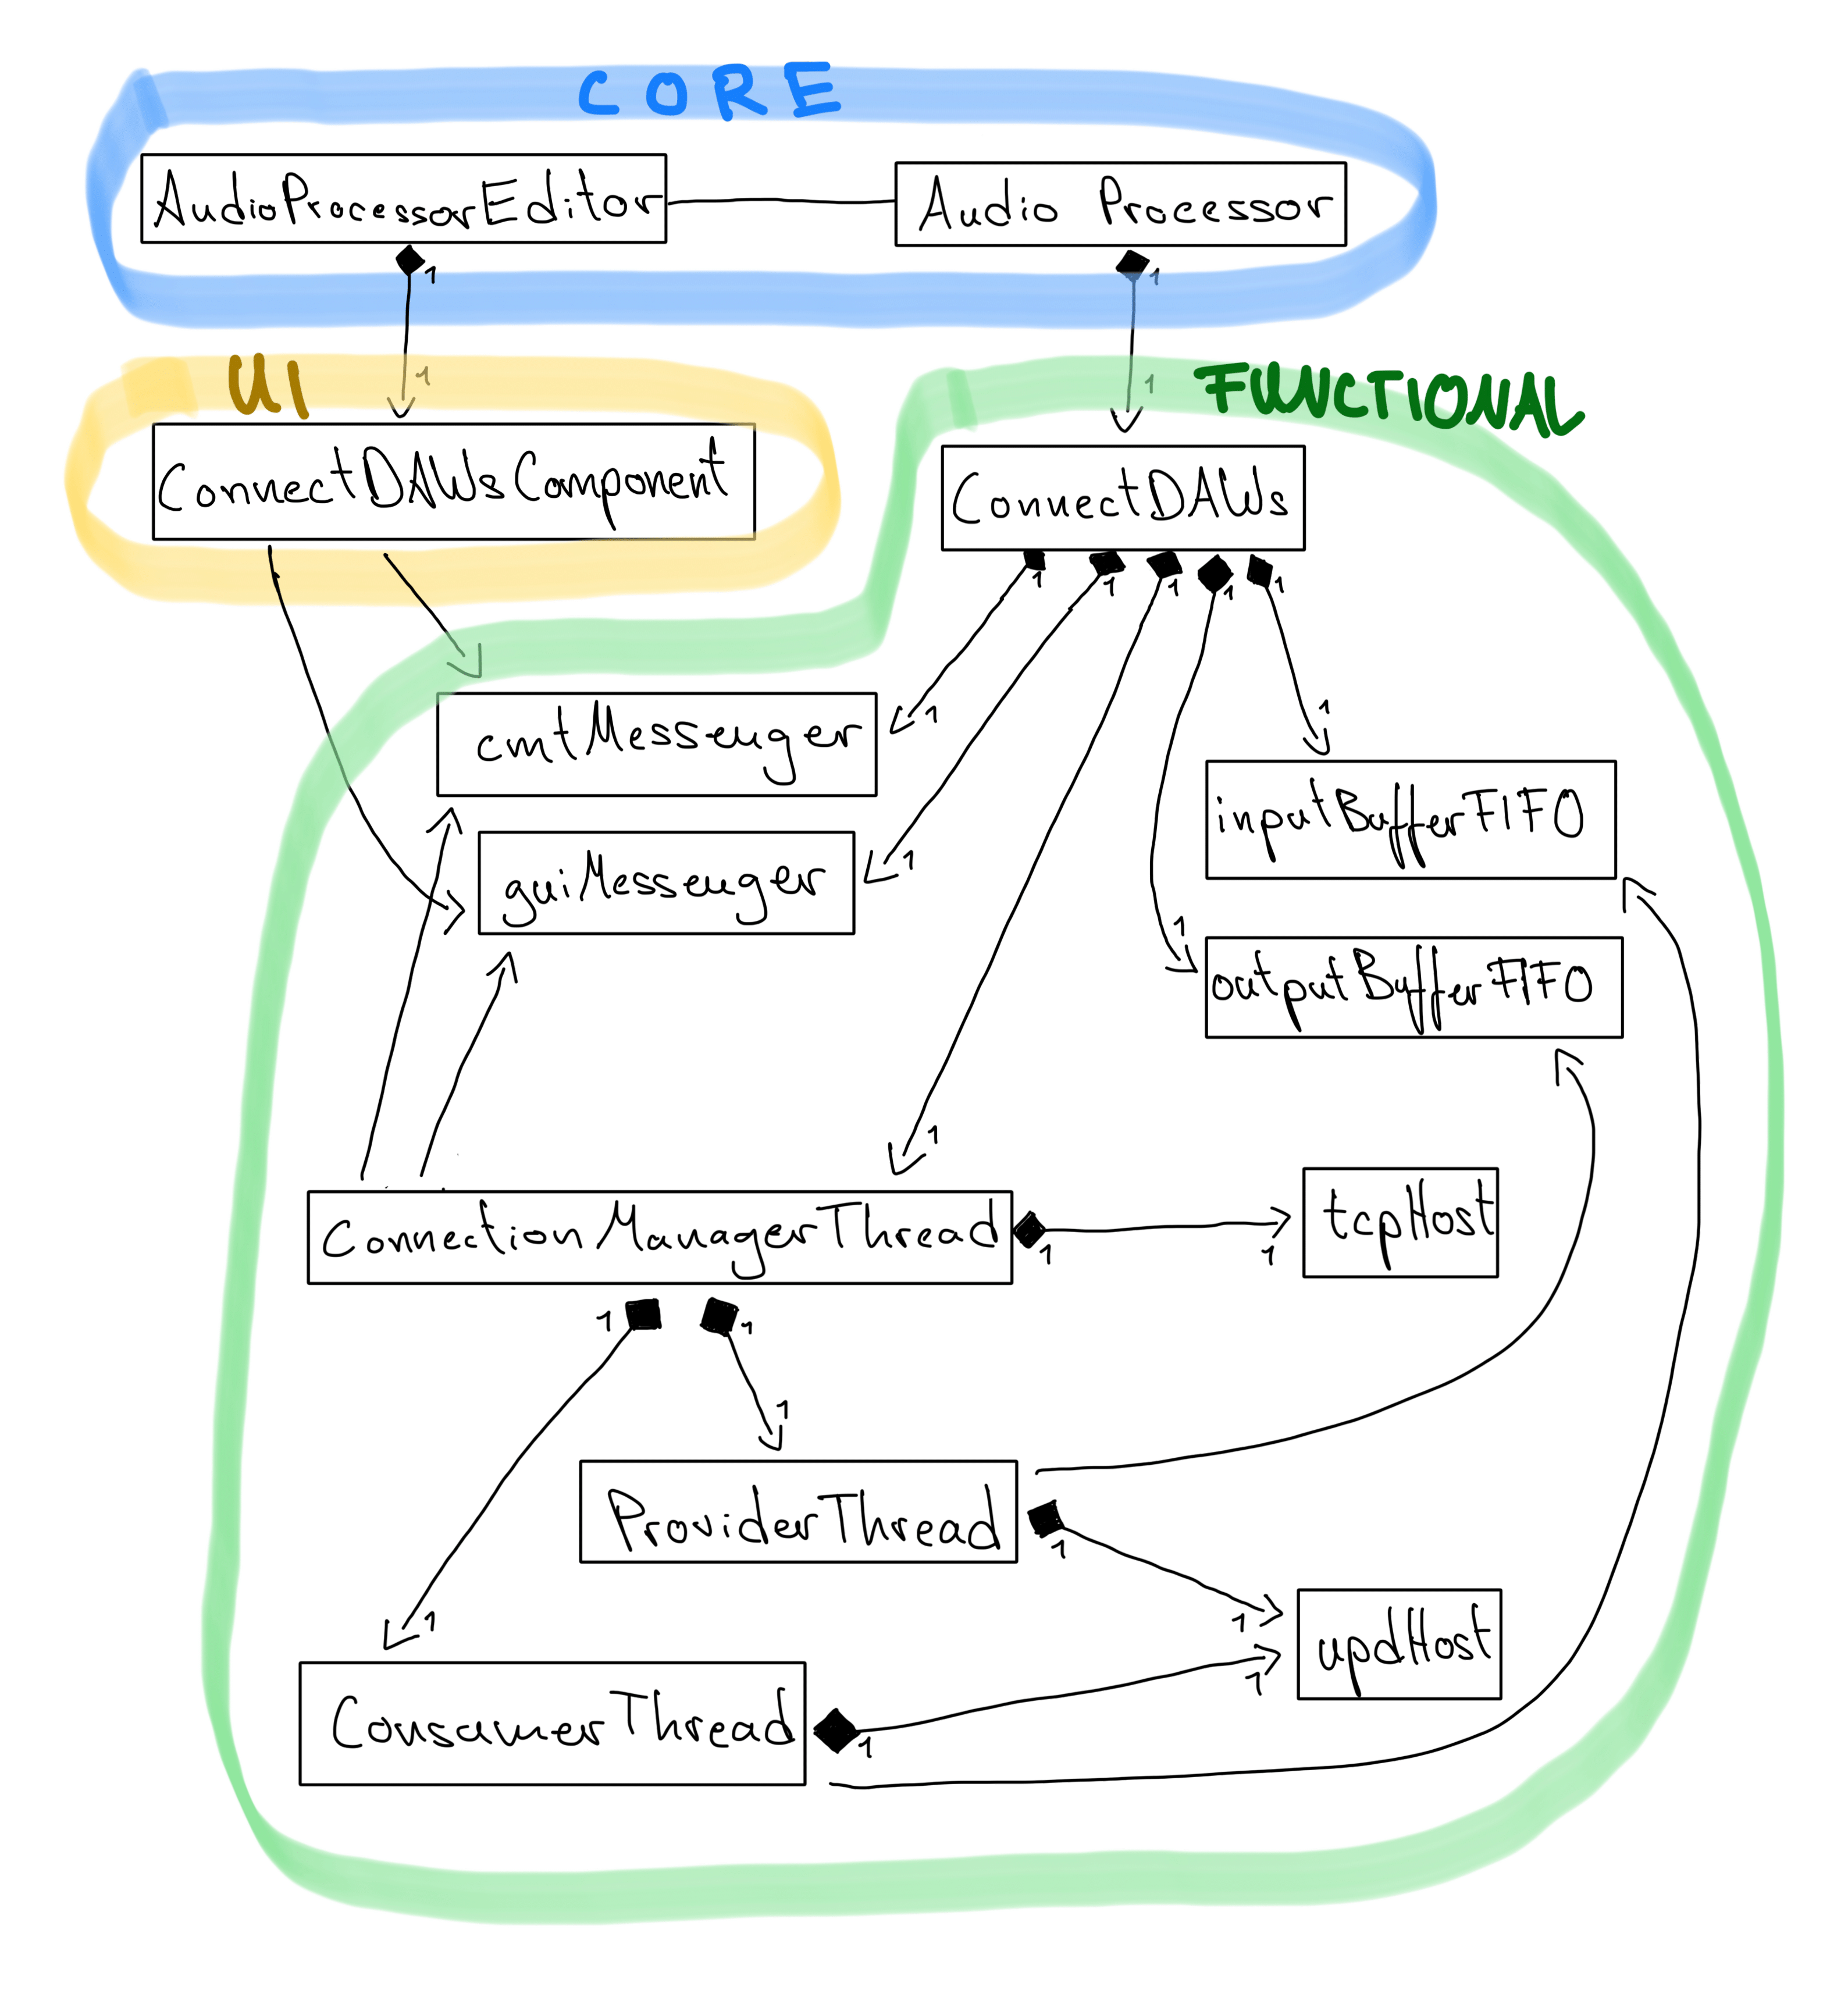 CORE
AudioProcessorEditor
Audio Processor
1
1
UI
1
1
FUNCTIONAL
ConnectDAWsComponent
ConnectDAWs
1
1
1
1
1
cmtMessenger
1
1
inputBufferFIFO
guiMessenger
1
1
outputBufferFIFO
1
ConnectionManagerThread
1
1
tcpHost
1
1
1
ProviderThread
1
1
updHost
1
1
ConsumerThread
1